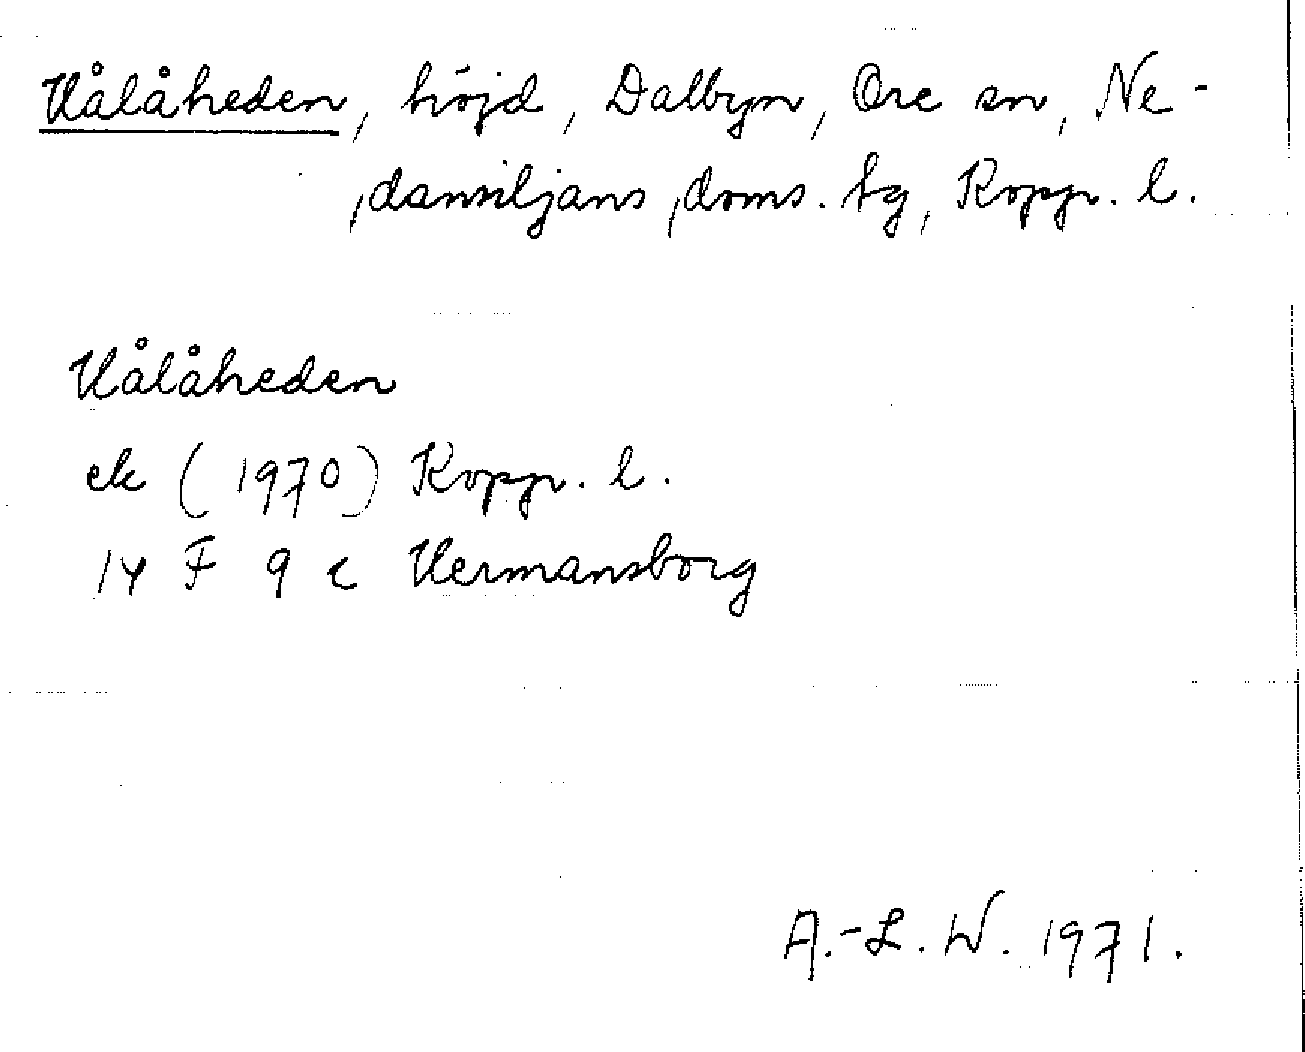 Vålåheden, höjd, Dalbyn, Ore sn, Ne-
dansiljans doms. tg, Kopp. l.
Vålåheden
ek (1970) Kopp. l.
14 F 9 c Hermansborg
A.-L. W. 1971.